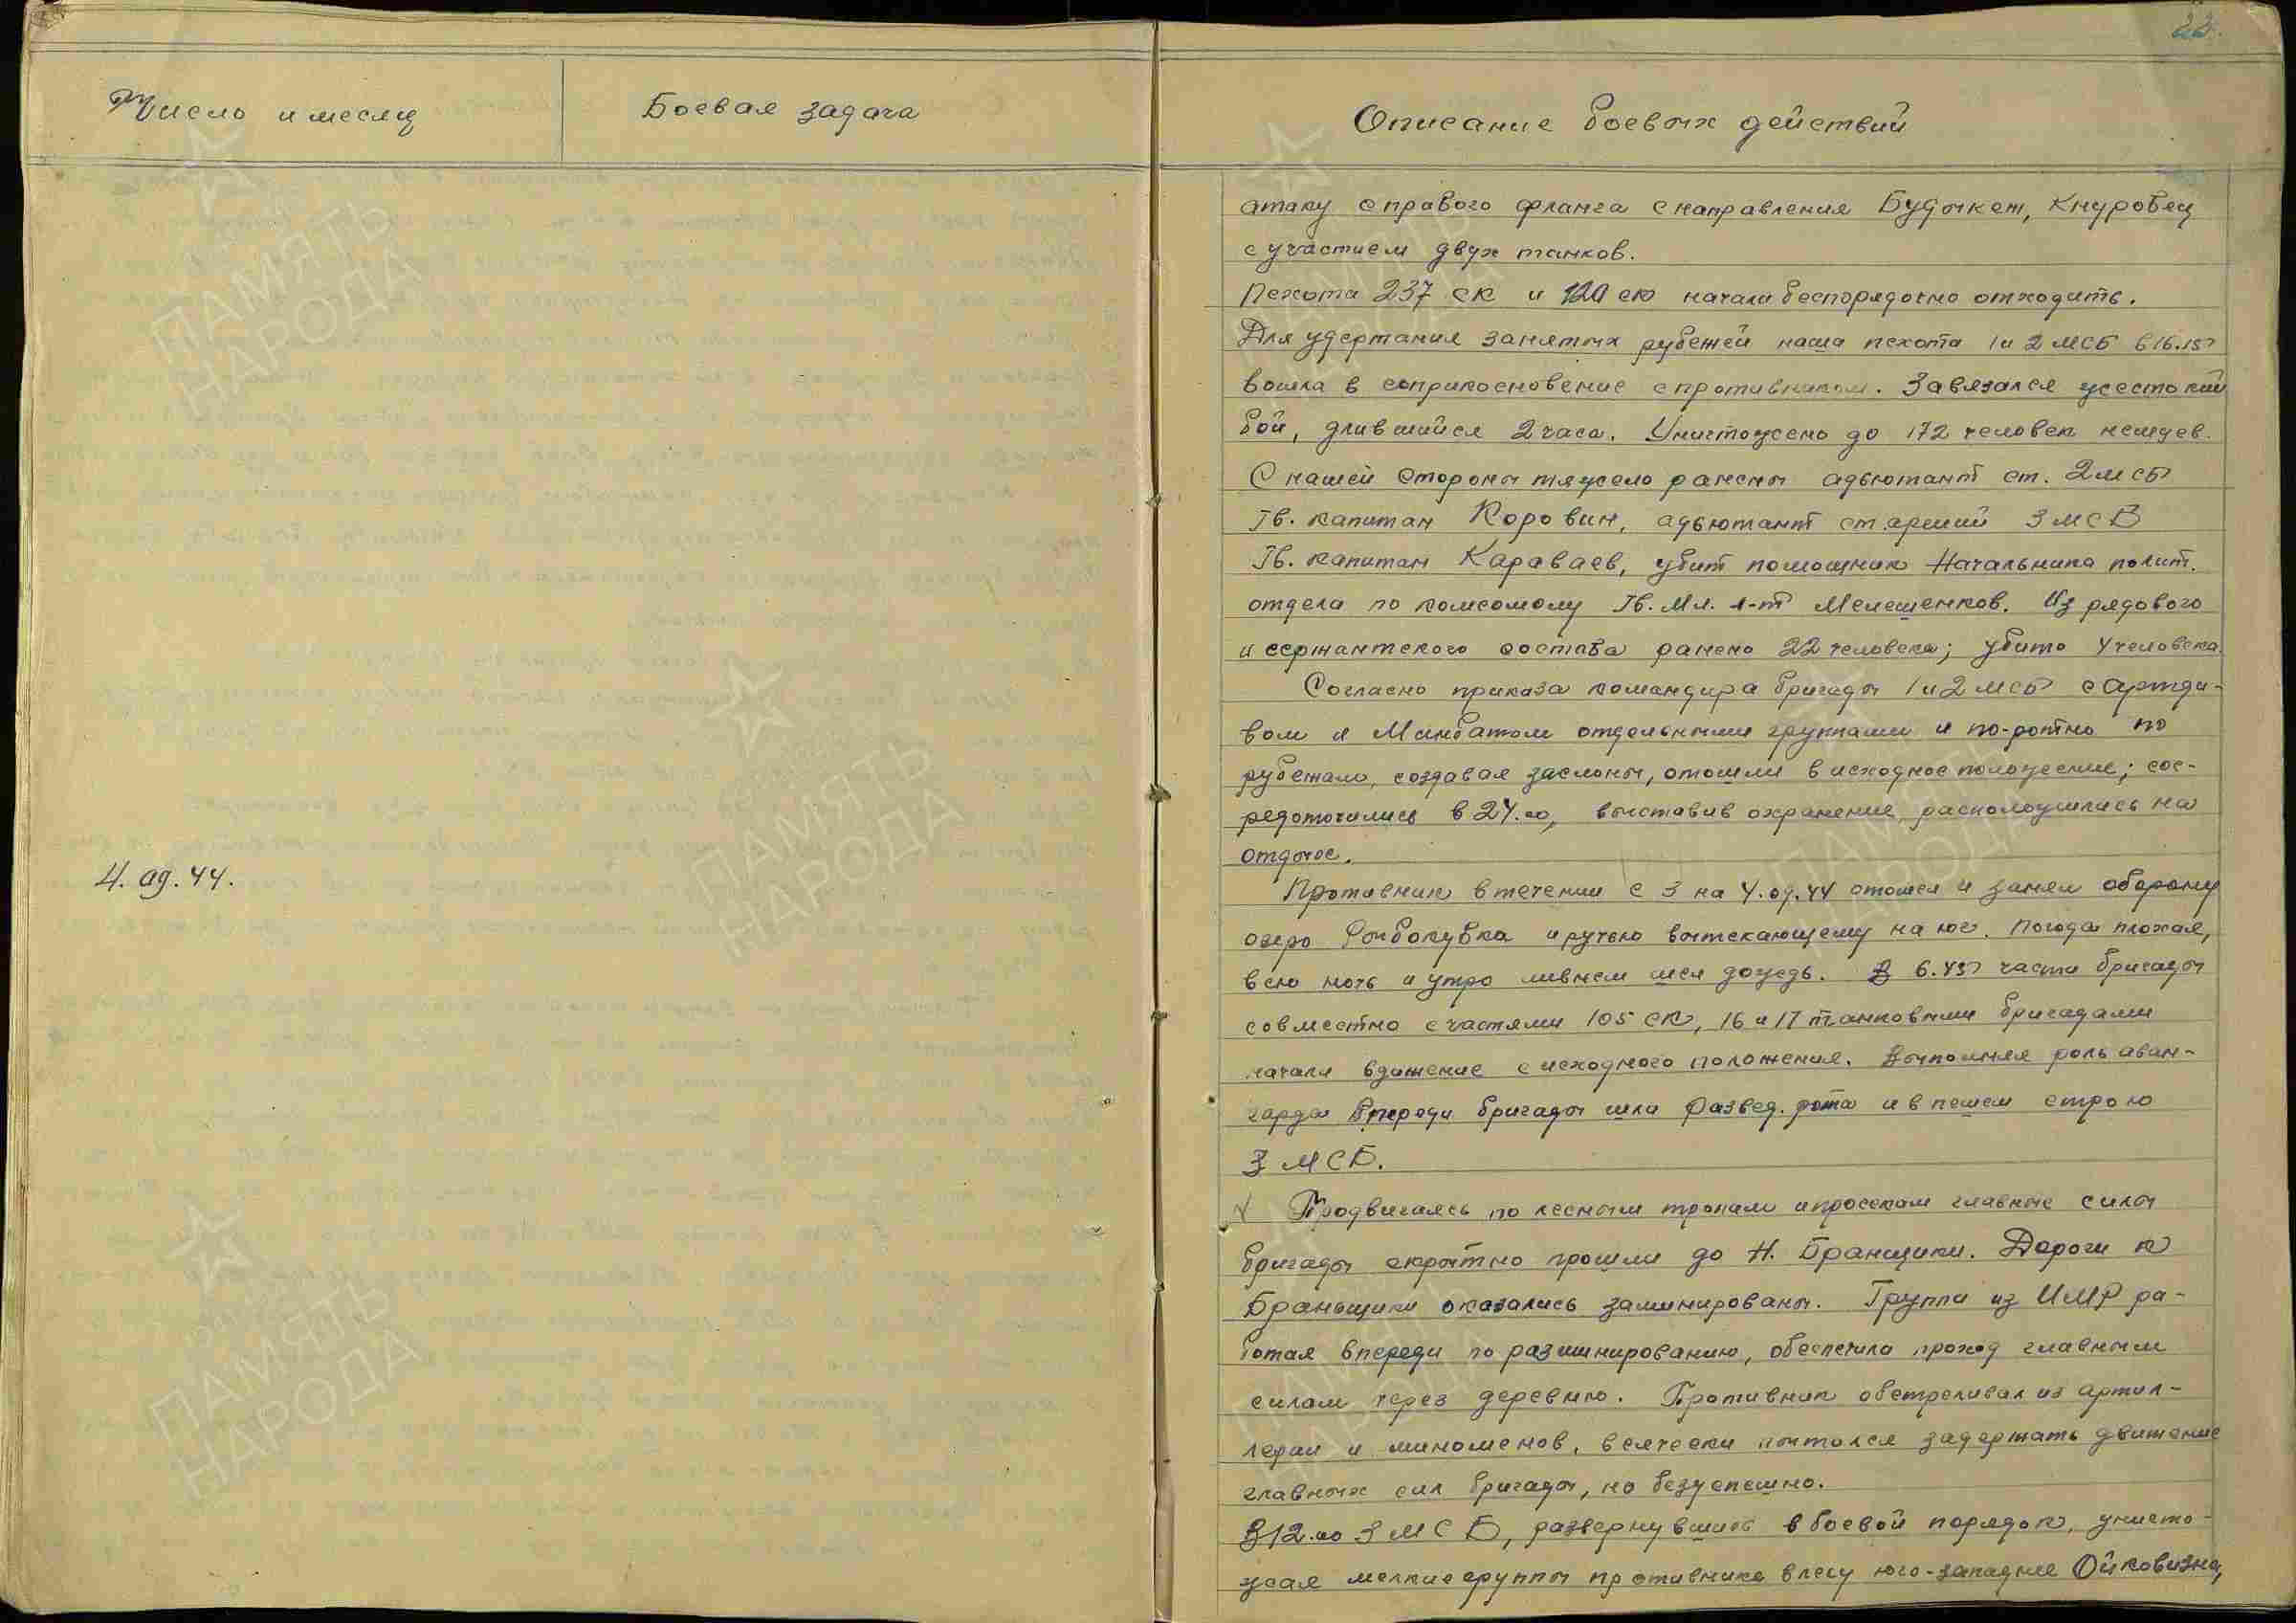 22.
Число и месяц
Боевая задача
Описание боевых действий
атаку с правого фланга с направления Будыкет, Кнуровец
с участием двух танков.
Пехота 237 ск и 120 ск начала беспорядочно отходить.
Для удержания занятых рубежей наша пехота 1 и 2 МСБ в 16.15
вошла в соприкосновение с противником. Завязался жестокий
бой, длившийся 2 часа. Уничтожено до 172 человек немцев.
С нашей стороны тяжело ранены адъютант ст. 2 МСБ
Гв. капитан Коровин, адъютант старший 3 МСБ
Гв. капитан Караваев, убит помощник Начальника полит.
отдела по комсомолу Гв. Мл. л-т Мелешенков. Из рядового
и сержантского состава ранено 22 человека; убито 4 человека
Согласно приказа командира бригады 1 и 2 МСБ с Артди-
вом и Минбатом отдельными группами и по-ротно по
рубежам, создавая заслоны, отошли в исходное положение; сос-
редоточились в 24.00, выставив охранение, расположились на
отдых.
4. 09. 44.
Противник в течении с 3 на 4.09.44 отошел и занял оборону
озеро Рыбокубка и ручью вытекающему на юг. Погода плохая,
всю ночь и утро ливнем шел дождь. В 6.45 части бригады
совместно с частями 105 СК, 16 и 17 танковыми бригадами
начали вдижение с исходного положения. Выполняя роль аван-
гарда впереди бригады шли Развед. рота и в пешем строю
3 МСБ.
√ Продвигаясь по лесным тропам и просекам главные силы
бригады скрытно прошли до Н. Бранщики. Дороги к
Браньщики оказались заминированы. Группа из ИМР ра-
ботая впереди по разминированию, обеспечила проход главным
силам через деревню. Противник обстреливал из артил-
лерии и минометов, всячески пытался задержать движение
главных сил бригады, но безуспешно.
В 12.00 3 МСБ, развернувшись в боевой порядок, уничто-
жая мелкие группы противника в лесу юго-западнее Ойковизна,
ПАМЯТЬ НАРОДА
ПАМЯТЬ НАРОДА
ПАМЯТЬ НАРОДА
ПАМЯТЬ НАРОДА
ПАМЯТЬ НАРОДА